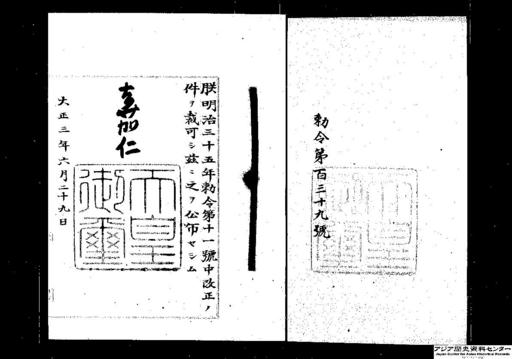 勅令第百三十九號
朕明治三十五年勅令第十一號中改正ノ
件ヲ裁可シ茲ニ之ヲ公布セシム
嘉仁
天皇
御璽
大正三年六月二十九日
アジア歴史資料センター
Japan Center for Asian Historical Records